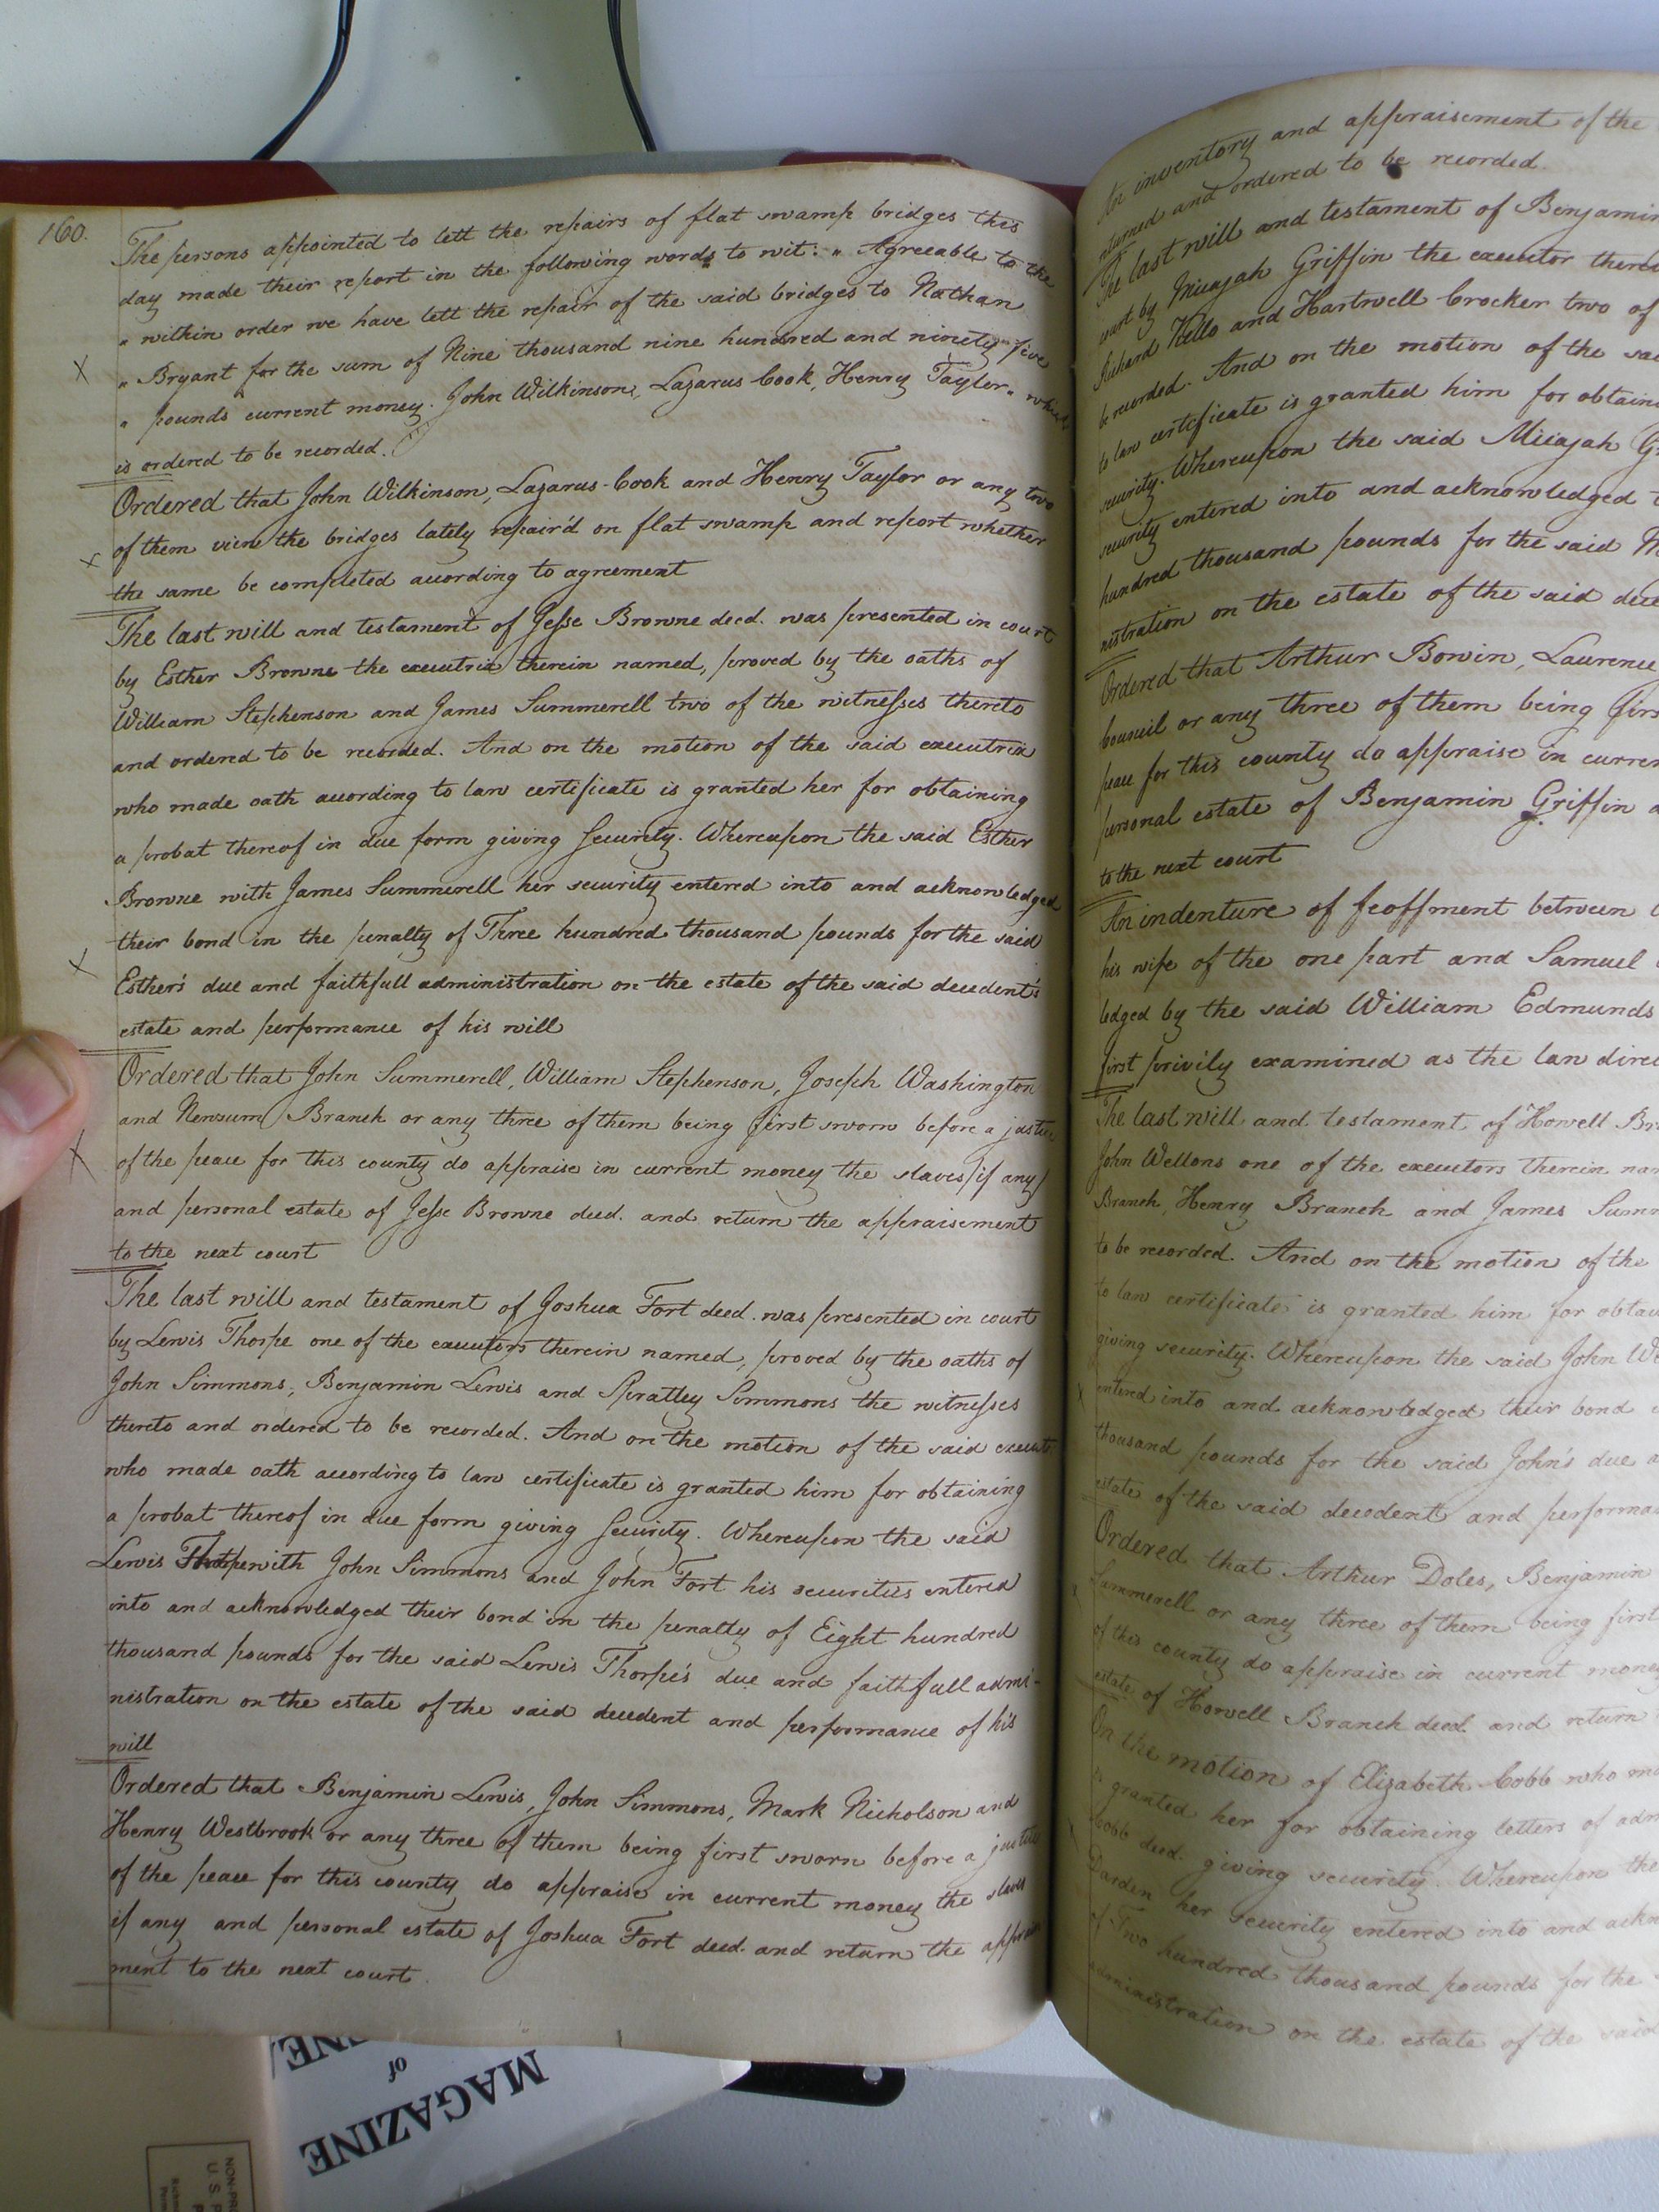 160.
The persons appointed to lett the repairs of flat swamp bridges this
day made their report in the following words to wit: " Agreeable to the
" within order we have lett the repair of the said bridges to Nathan
" Bryant for the sum of Nine thousand nine hundred and ninety five
" pounds current money. John Wilkinson, Lazarus Cook, Henry Taylor " which
is ordered to be recorded.
Ordered that John Wilkinson, Lazarus Cook and Henry Taylor or any two
of them view the bridges lately repair'd on flat swamp and report whether
the same be completed according to agreement
The last will and testament of Jesse Browne deed. was presented in court
by Esther Browne the executrix therein named, proved by the oaths of
William Stephenson and James Summerell two of the witnesses thereto
and ordered to be recorded. And on the motion of the said executrix
who made oath according to law certificate is granted her for obtaining
a probat thereof in due form giving security. Whereupon the said Esther
Browne with James Summerell her security entered into and acknowledged
their bond in the penalty of Three hundred thousand pounds for the said
Esther's due and faithfull administration on the estate of the said decedent's
estate and performance of his will
Ordered that John Summerell, William Stephenson, Joseph Washington
and Newsum Branch or any three of them being first sworn before a justice
of the peace for this county do appraise in current money the slaves (if any)
and personal estate of Jesse Browne deed. and return the appraisement
to the next court
The last will and testament of Joshua Fort deed. was presented in court
by Lewis Thorpe one of the executors therein named, proved by the oaths of
John Simmons, Benjamin Lewis and Spratley Simmons the witnesses
thereto and ordered to be recorded. And on the motion of the said executor
who made oath according to law certificate is granted him for obtaining
a probat thereof in due form giving security. Whereupon the said
Lewis Thorpe with John Simmons and John Fort his securities entered
into and acknowledged their bond in the penalty of Eight hundred
thousand pounds for the said Lewis Thorpe's due and faithfull admi-
nistration on the estate of the said decedent and performance of his
will
Ordered that Benjamin Lewis, John Simmons, Mark Nicholson and
Henry Westbrook or any three of them being first sworn before a justice
of the peace for this county do appraise in current money the slaves
if any and personal estate of Joshua Fort deed. and return the appraise
ment to the next court.
An inventory and appraisement of the
returned and ordered to be recorded.
The last will and testament of Benjamin
court by Micajah Griffin the executor
Richard Kello and Hartwell Crocker two of
be recorded. And on the motion of the
to law certificate is granted him for
security. Whereupon the said Micajah
security entered into and acknowledged
hundred thousand pounds for the said
nistration on the estate of the said
Ordered that Arthur Bowin, Laurence
Council or any three of them being
peace for this county do appraise in
personal estate of Benjamin Griffin
to the next court
An indenture of feoffment between
his wife of the one part and Samuel
ledged by the said William Edmunds
first privily examined as the law
The last will and testament of Howell
John Wellons one of the executors therein
Branch, Henry Branch and James
to be recorded. And on the motion of the
to law certificate is granted him for
giving security. Whereupon the said John
entered into and acknowledged their bond
thousand pounds for the said John's due
estate of the said decedent and
Ordered that Arthur Doles, Benjamin
Summerell or any three of them being first
of this county do appraise in current money
estate of Howell Branch deed. and return
On the motion of Elizabeth Cobb who
is granted her for obtaining letters of
Cobb deed. giving security. Whereupon the
Darden her security entered into and
of Two hundred thousand pounds for the
administration on the estate of the said
MAGAZINE
of